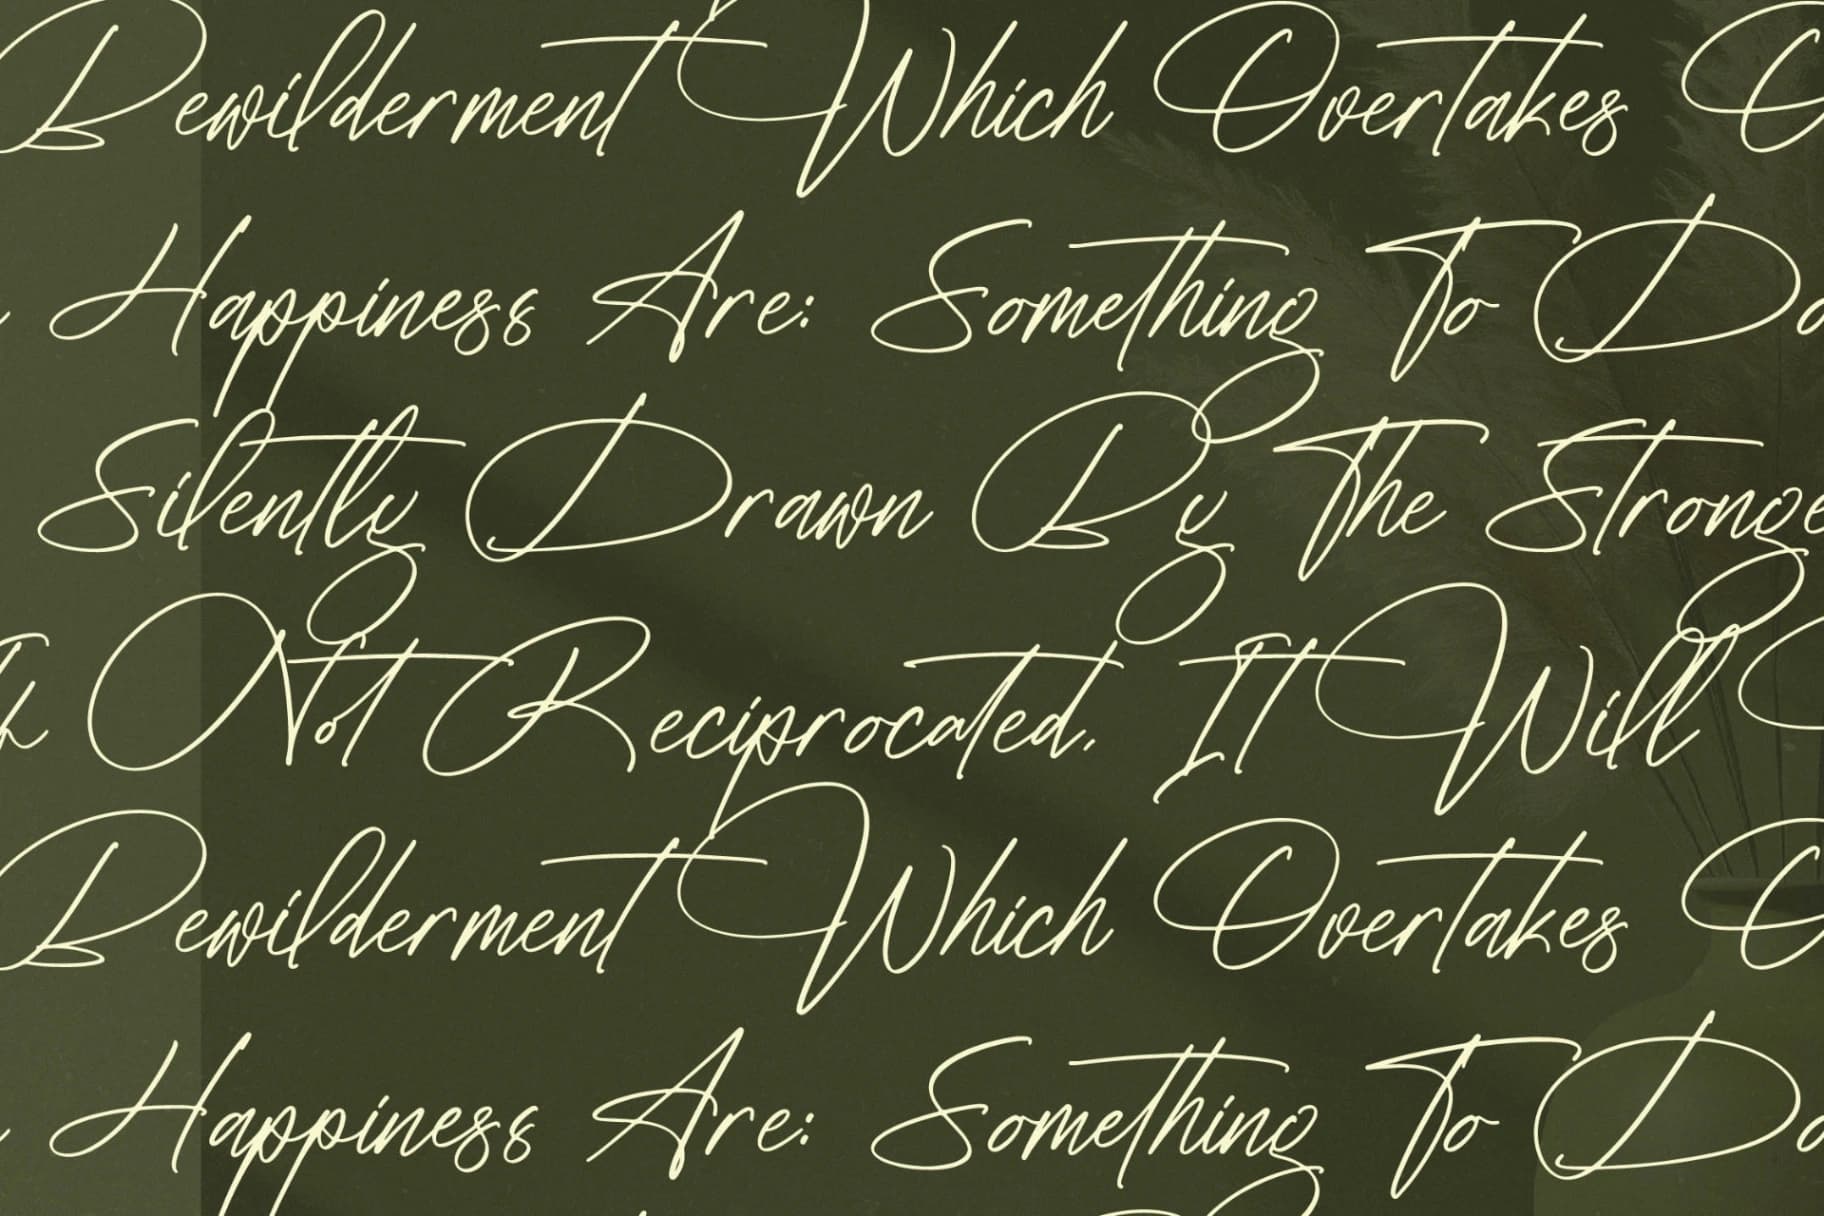 Bewilderment Which Overtakes
Happiness Are: Something To Do
Silently Drawn By The Strange
Not Reciprocated, It Will
Bewilderment Which Overtakes
Happiness Are: Something To Do